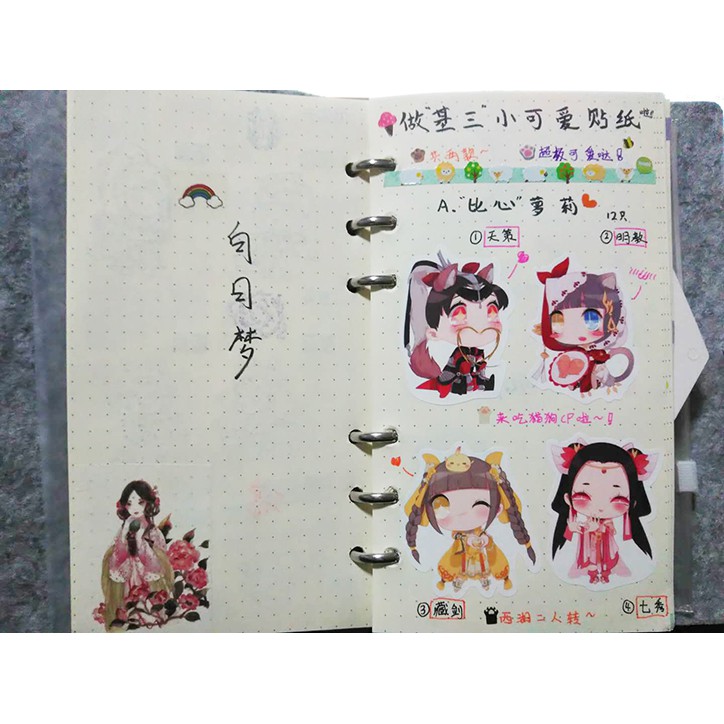 白日梦
做"基三"小可爱贴纸啦!
来两颗~ 超极可爱哒!
A."比心"萝莉 12只
①天策 ②明教
来吃猫狗CP啦~!
③藏剑 西湖二人转~ ④七秀